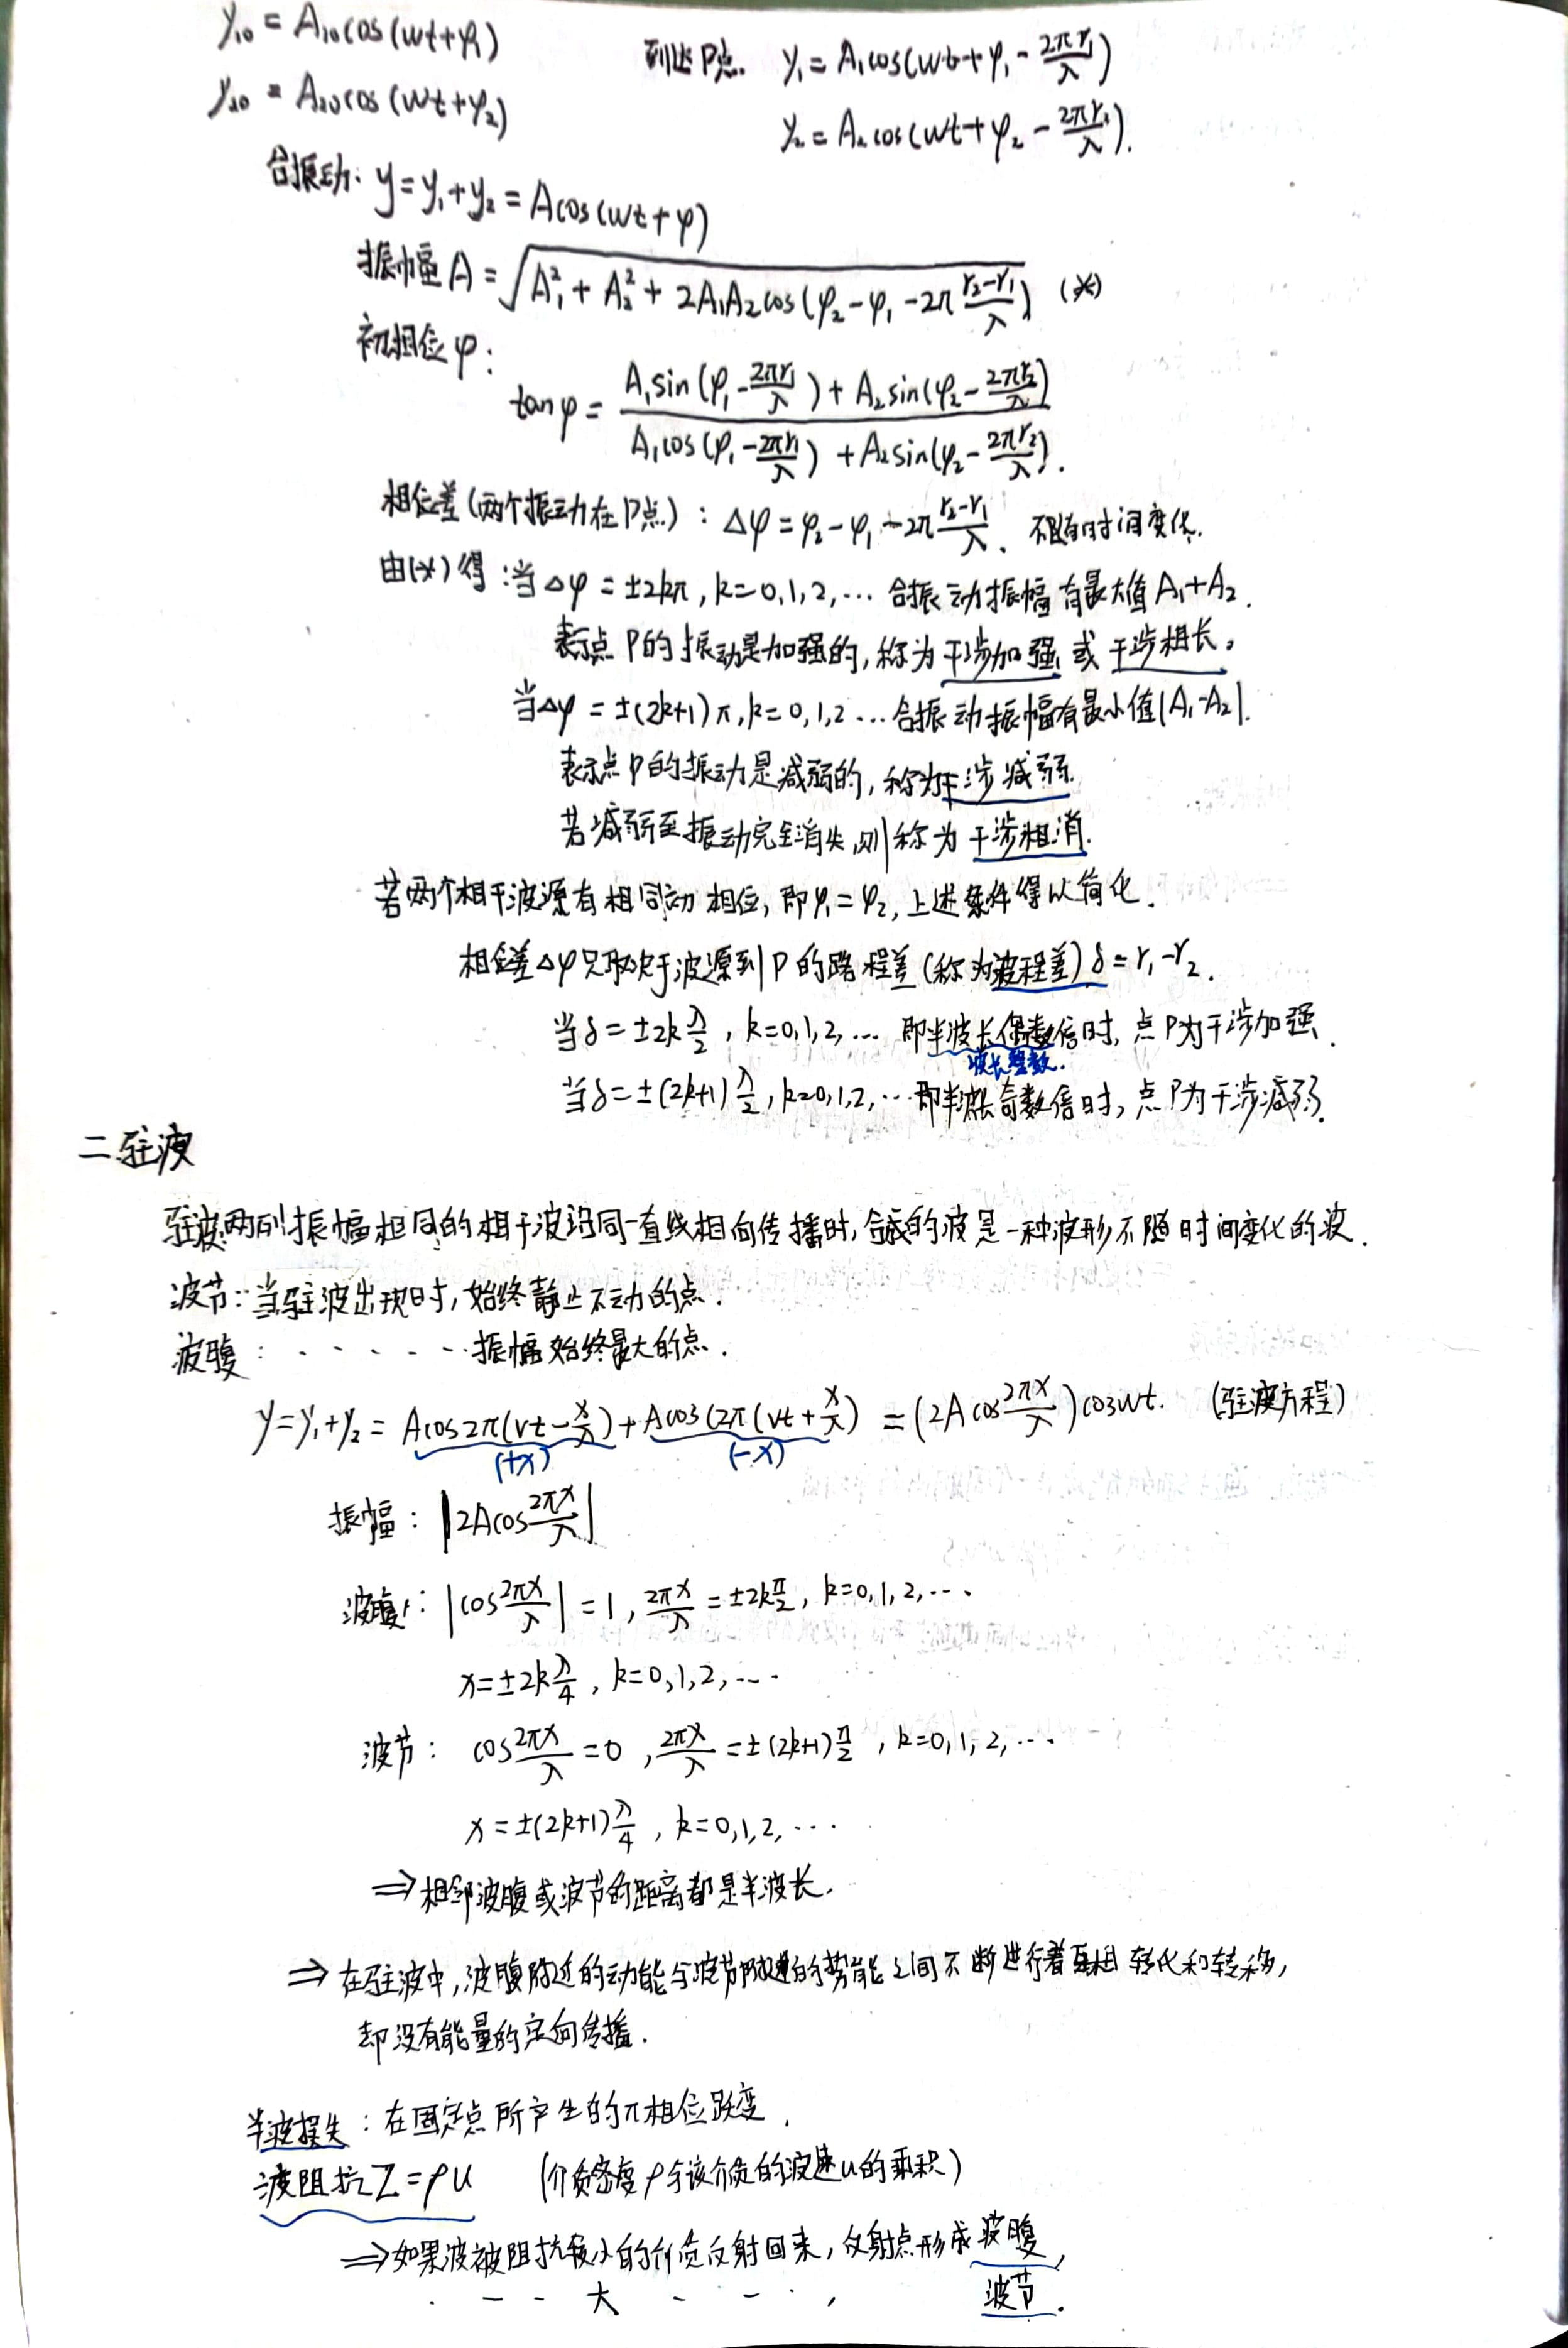 y₁₀ = A₁₀cos(ωt+φ₁)
y₂₀ = A₂₀cos(ωt+φ₂)
到达P点. y₁ = A₁cos(ωt+φ₁-2πr₁/λ)
y₂ = A₂cos(ωt+φ₂-2πr₂/λ).
合振动: y=y₁+y₂ = Acos(ωt+φ)
振幅A = √(A₁²+A₂²+2A₁A₂cos(φ₂-φ₁-2π(r₂-r₁)/λ)) (*)
初相位φ:
tanφ = [A₁sin(φ₁-2πr₁/λ) + A₂sin(φ₂-2πr₂/λ)] / [A₁cos(φ₁-2πr₁/λ) + A₂sin(φ₂-2πr₂/λ)].
相位差(两个振动在P点): Δφ = φ₂-φ₁-2π(r₂-r₁)/λ. 不随时间变化.
由(*)得:当Δφ = ±2kπ, k=0,1,2,… 合振动振幅有最大值A₁+A₂.
表示点P的振动是加强的,称为干涉加强或干涉相长。
当Δφ = ±(2k+1)π, k=0,1,2… 合振动振幅有最小值|A₁-A₂|.
表示点P的振动是减弱的,称为干涉减弱.
若减弱至振动完全消失,则称为干涉相消.
若两个相干波源有相同初相位,即φ₁=φ₂,上述条件得以简化.
相位差Δφ只取决于波源到P的路程差(称为波程差)δ=r₁-r₂.
当δ=±2kλ/2, k=0,1,2,… 即半波长偶数倍时,点P为干涉加强.
波长整数.
当δ=±(2k+1)λ/2, k=0,1,2,… 即半波长奇数倍时,点P为干涉减弱.
二.驻波
驻波:两列振幅相同的相干波沿同一直线相向传播时,合成的波是一种波形不随时间变化的波.
波节:当驻波出现时,始终静止不动的点.
波腹: · · · · · · 振幅始终最大的点.
y=y₁+y₂ = Acos2π(νt-x/λ)+Acos(2π(νt+x/λ) = (2Acos2πx/λ)cosωt. (驻波方程)
(+x) (-x)
振幅: |2Acos2πx/λ|
波腹: |cos2πx/λ| = 1, 2πx/λ = ±2kπ/2, k=0,1,2,…
x=±2kλ/4, k=0,1,2,…
波节: cos2πx/λ=0, 2πx/λ=±(2k+1)π/2, k=0,1,2,…
x=±(2k+1)λ/4, k=0,1,2,…
⇒相邻波腹或波节的距离都是半波长.
⇒在驻波中,波腹附近的动能与波节附近的势能之间不断进行着互相转化和转移,
却没有能量的定向传播.
半波损失: 在固定点所产生的π相位跃变.
波阻抗Z=ρu (介质密度ρ与该介质的波速u的乘积)
⇒如果波被阻抗较小的介质反射回来,反射点形成波腹,
· - - 大 - - · , 波节.